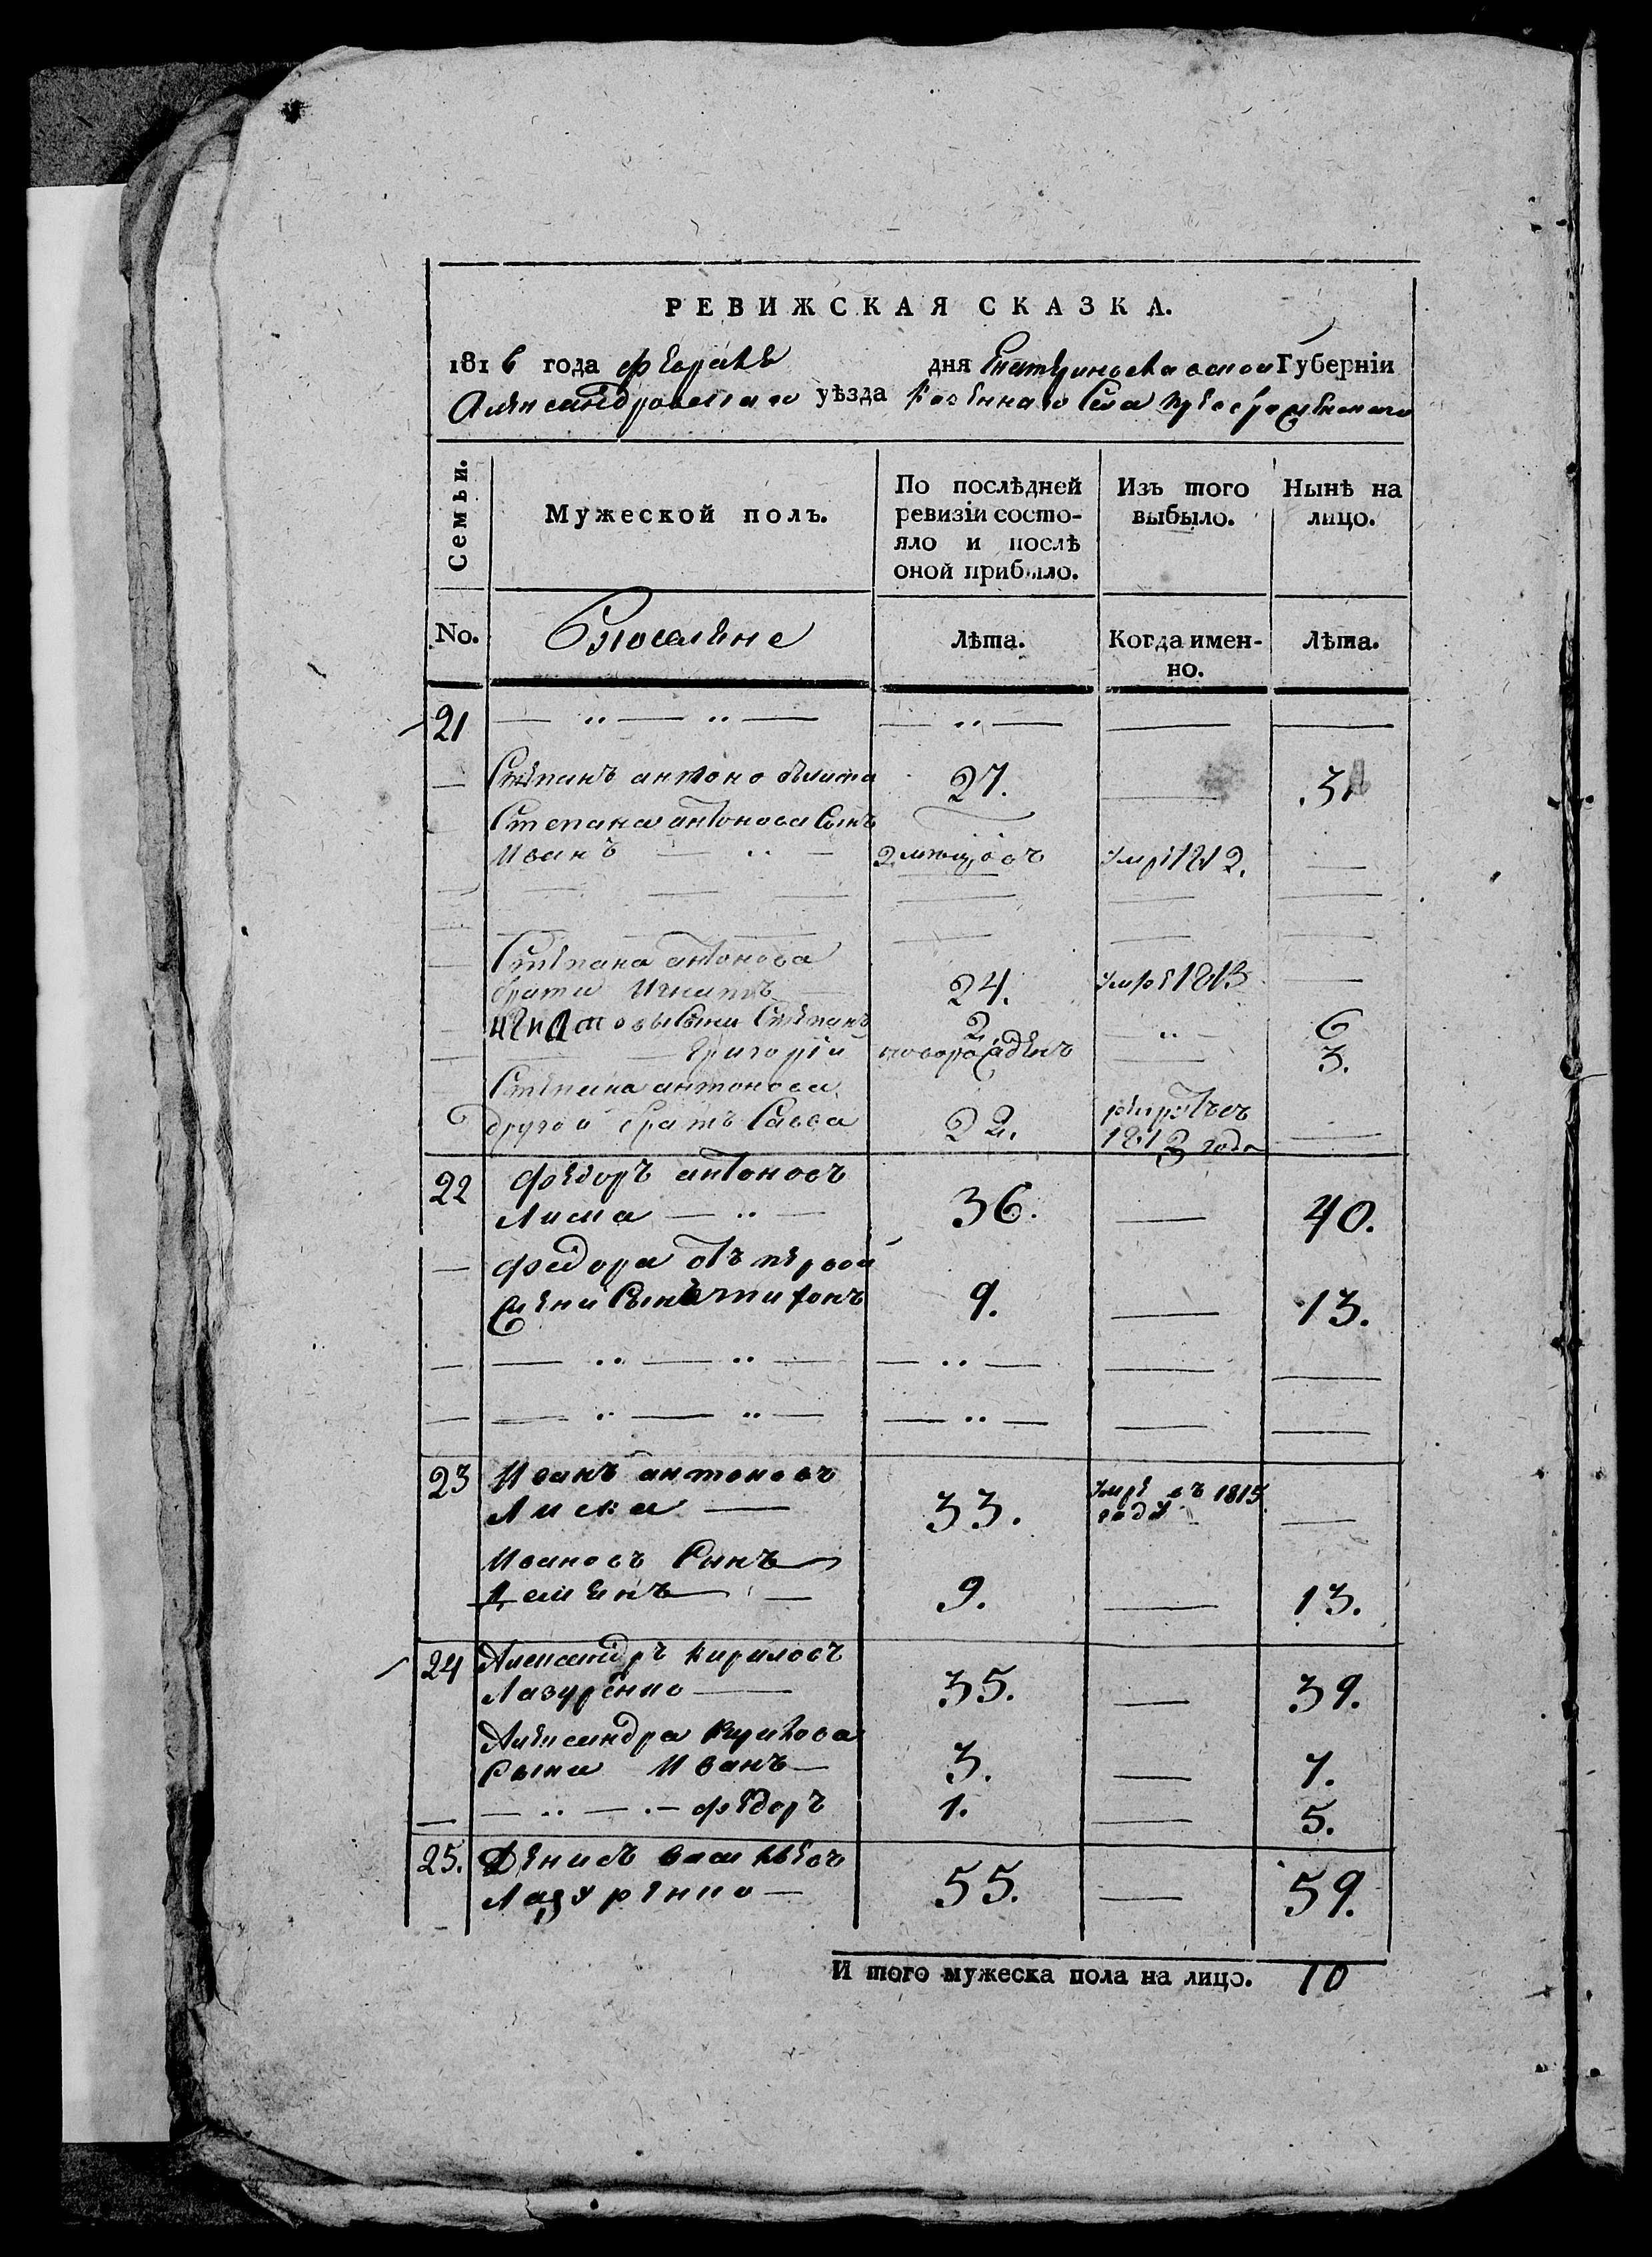 РЕВИЖСКАЯ СКАЗКА.
1816 года февраля дня Екатеринославской Губерніи
Александровскаго уѣзда Казеннаго Села Преображенскаго
Семьи.
Мужеской полъ.
По послѣдней ревизіи состо-
яло и послѣ
оной прибыло.
Изъ того
выбыло.
Нынѣ на
лицо.
No.
Лѣта.
Когда имен-
но.
Лѣта.
21 — „ — „ — — „ — — —
— Степанъ антоно 27. — 31
Степана антонова Сынъ
Иванъ — „ — 2 мѣсяцовъ умре 1812. —
Степана антонова
брата Игнатъ — 24. умре 1813 —
Игнатовы Сыни Степанъ 2. „ 6
Григорій новорожденъ — 3.
Степана антонова
другой братъ Савва 22. рекрутъ въ
1813 года —
22 Федоръ антоновъ
Лиска — „ — 36. — 40.
— Федора отъ первой
жени Сынъ тихонъ 9. — 13.
— — „ — „ — — „ — — —
— — „ — „ — — „ — — —
23 Иванъ антоновъ
Лиска — 33. умре въ 1815
году —
Ивановъ Сынъ
Демянъ — 9. — 13.
24 Александръ кириловъ
Лазуренко — 35. — 39.
Александра Кирилова
Сыни Иванъ — 3. — 7.
— — „ — „ — федоръ 1. — 5.
25. Денисъ васильевъ
Лазуренко — 55. — 59.
И того мужеска пола на лицо. 10